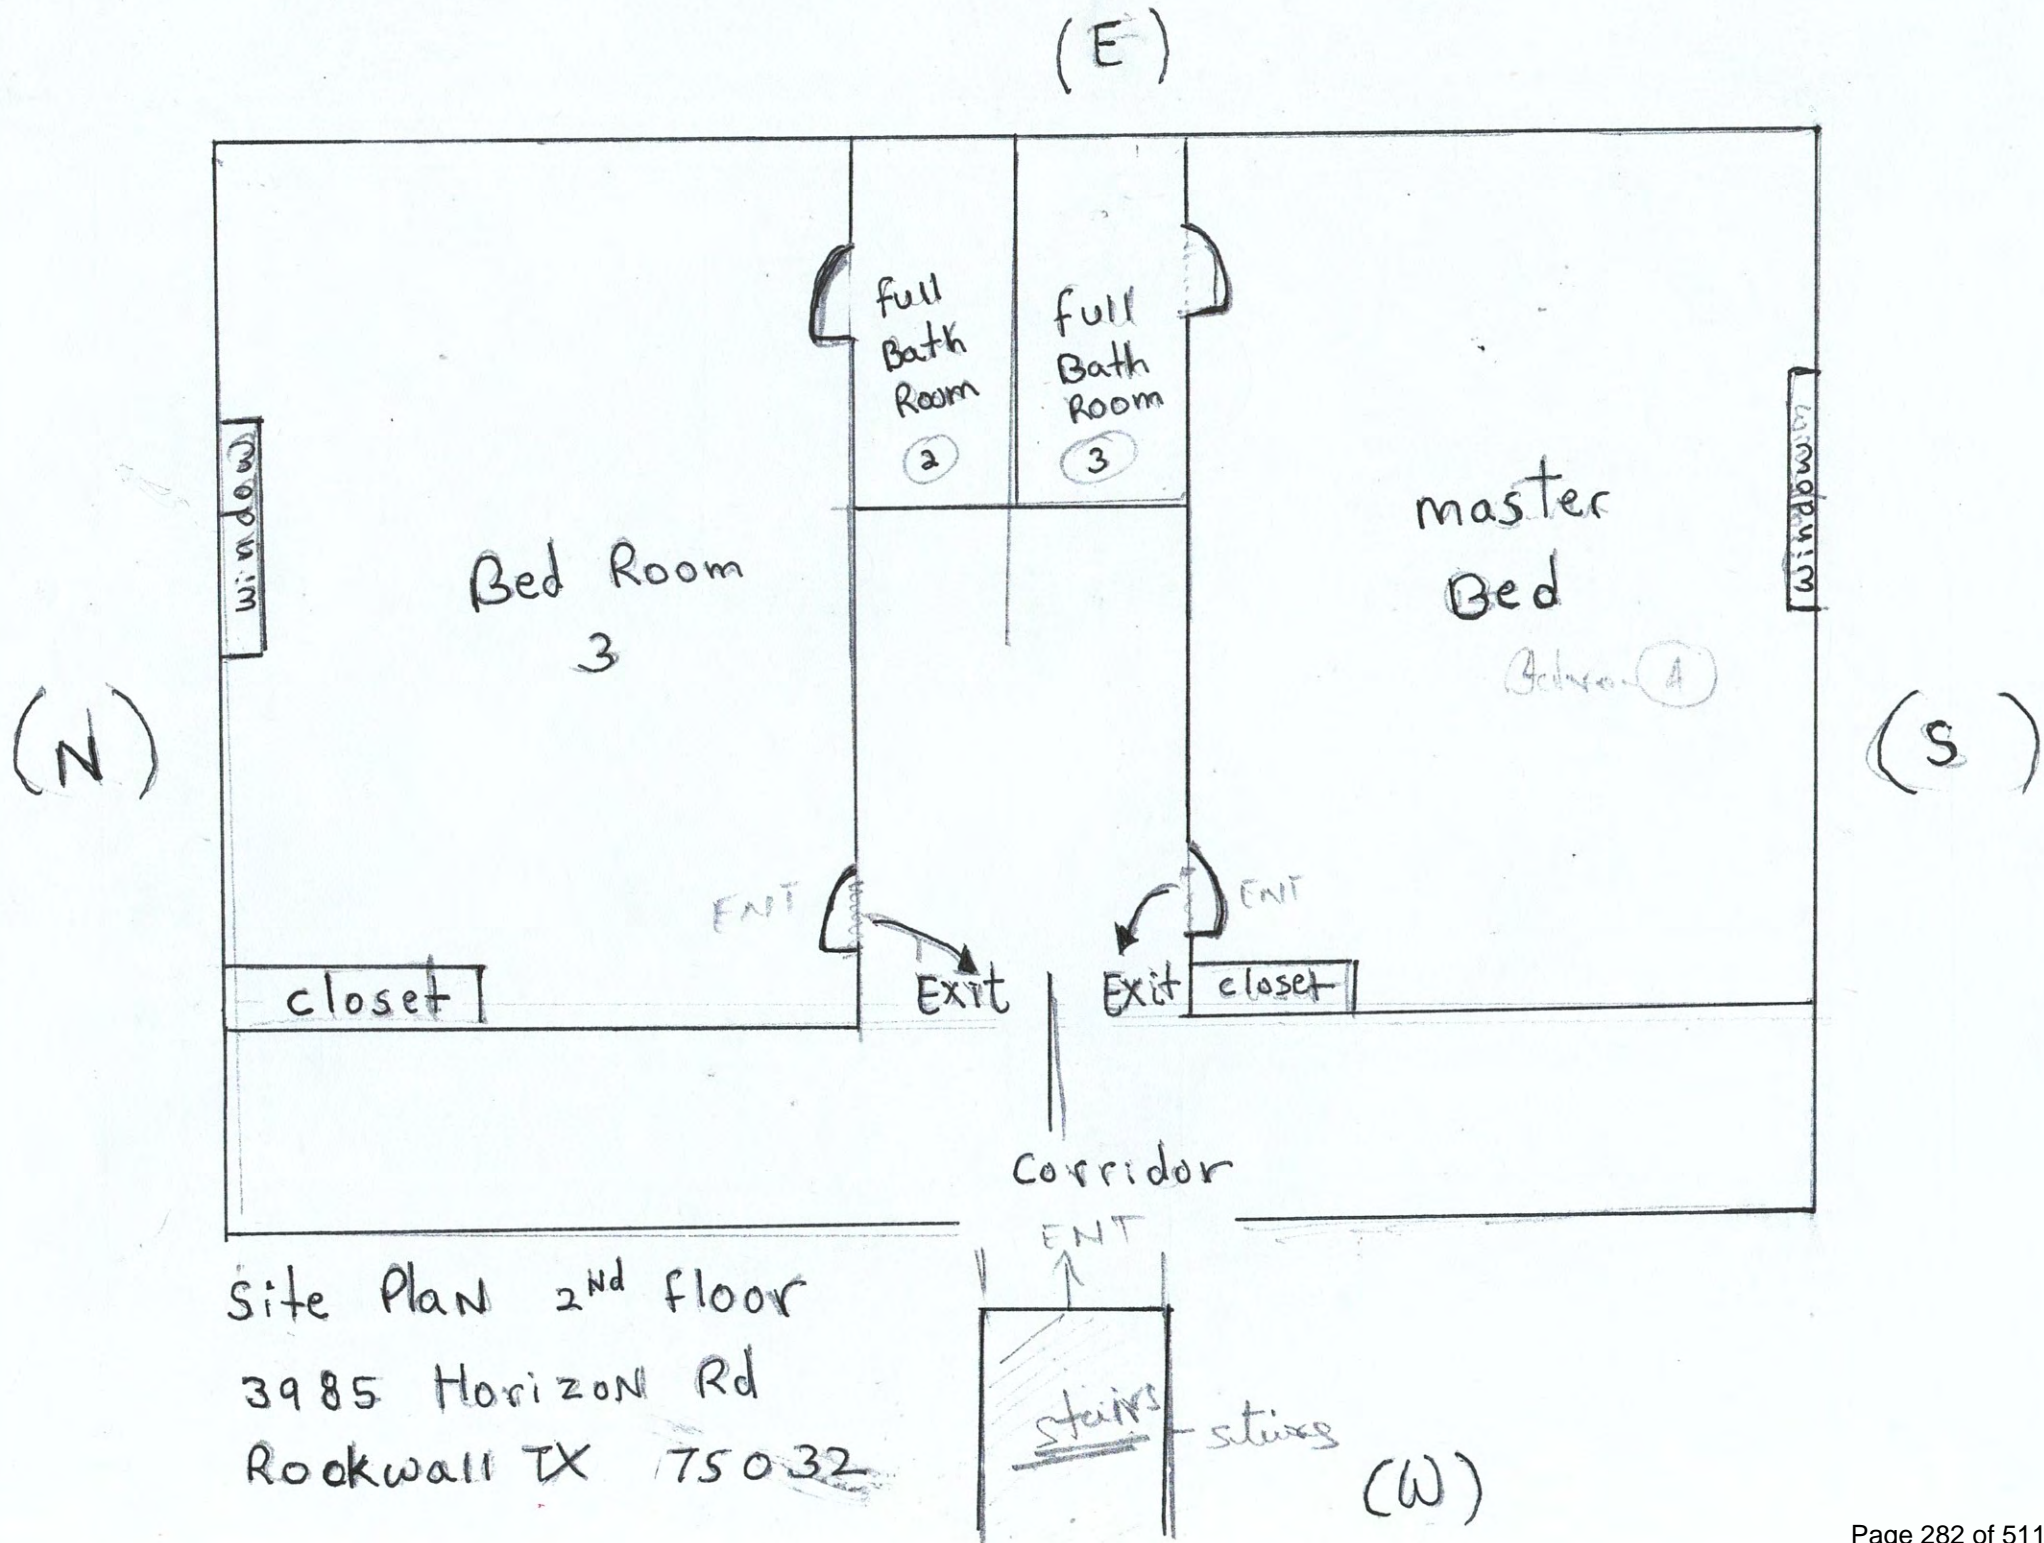 (E)
full
Bath
Room
2
full
Bath
Room
3
window
Bed Room
3
master
Bed
window
4
(N)
(S)
ENT
ENT
Exit
Exit
closet
closet
Corridor
ENT
Site PlaN 2Nd floor
3985 HorizoN Rd
Rockwall TX 75032
stairs
stairs
(W)
Page 282 of 511